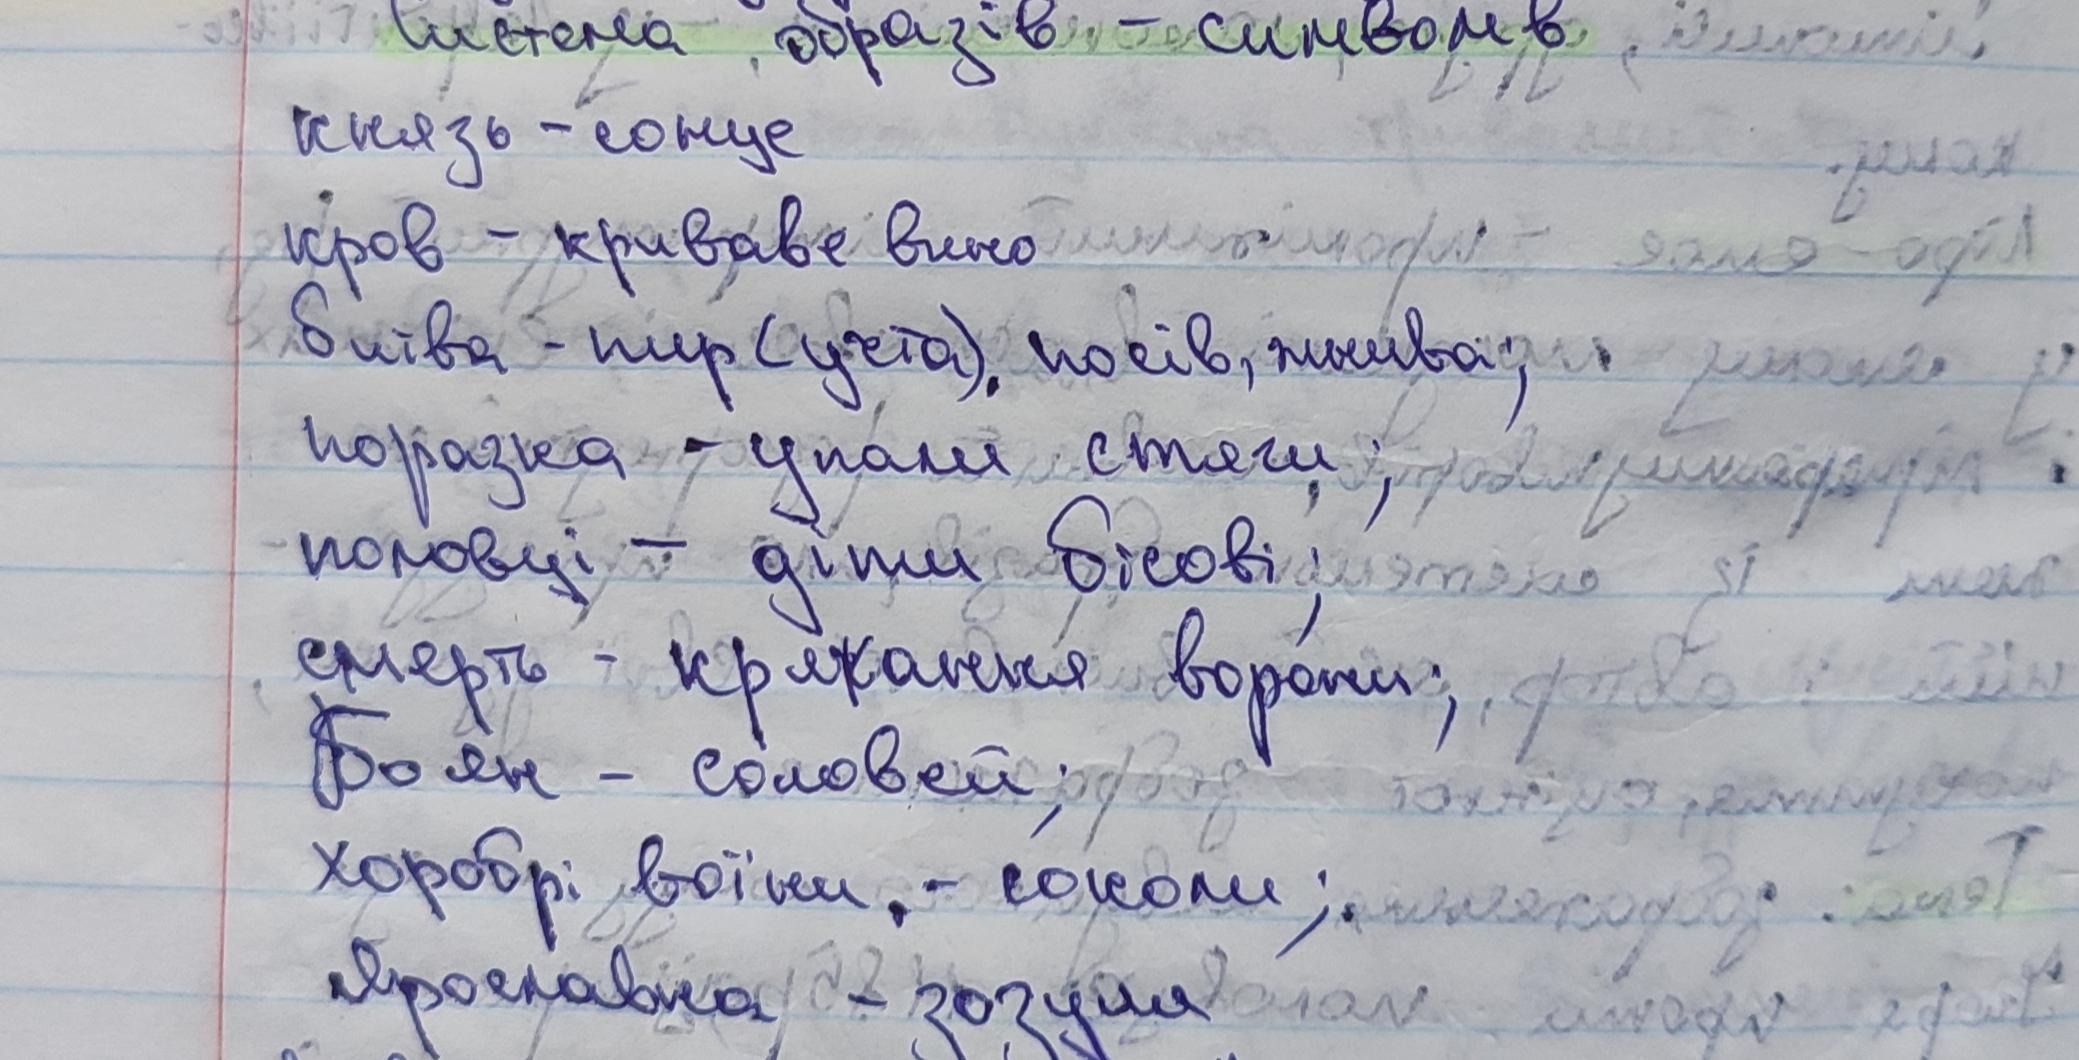 Система образів - символів
князь - сонце
кров - криваве вино
битва - пир (учта), посів, жнива;
поразка - упали стяги;
половці - діти бісові;
смерть - крякання ворони;
Боян - соловей;
хоробрі воїни - соколи;
Ярославна - зозуля